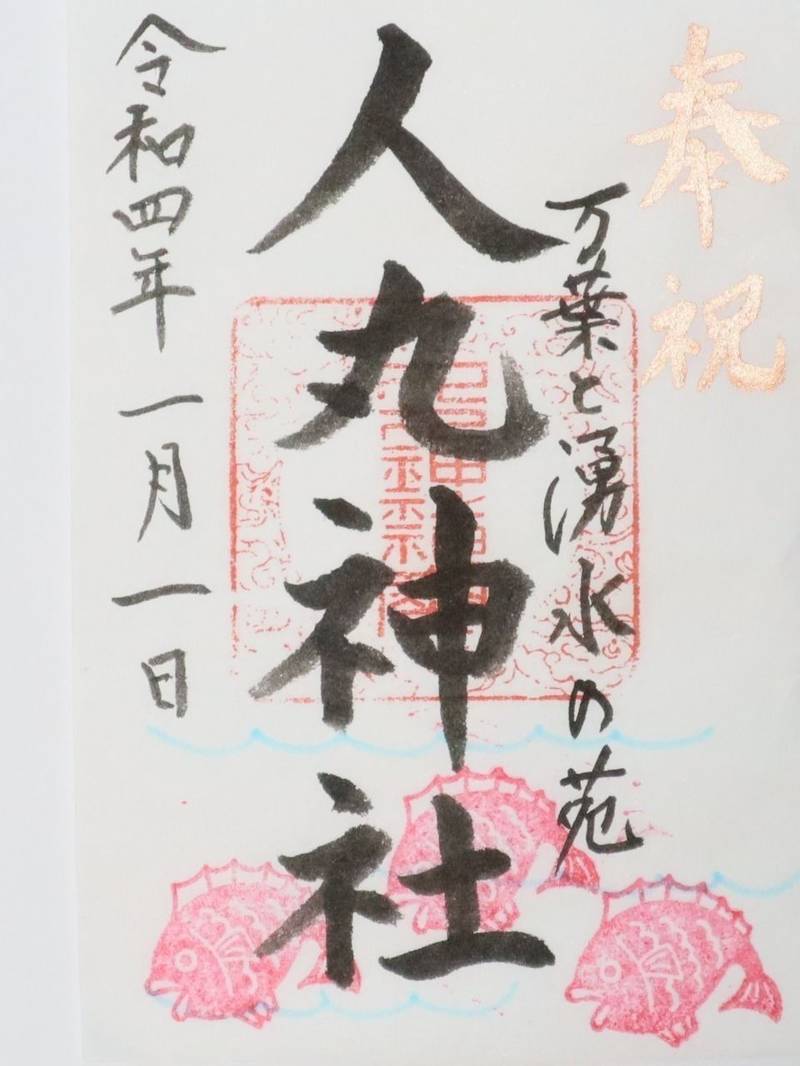 奉祝
万葉と湧水の苑
人丸神社
令和四年一月一日